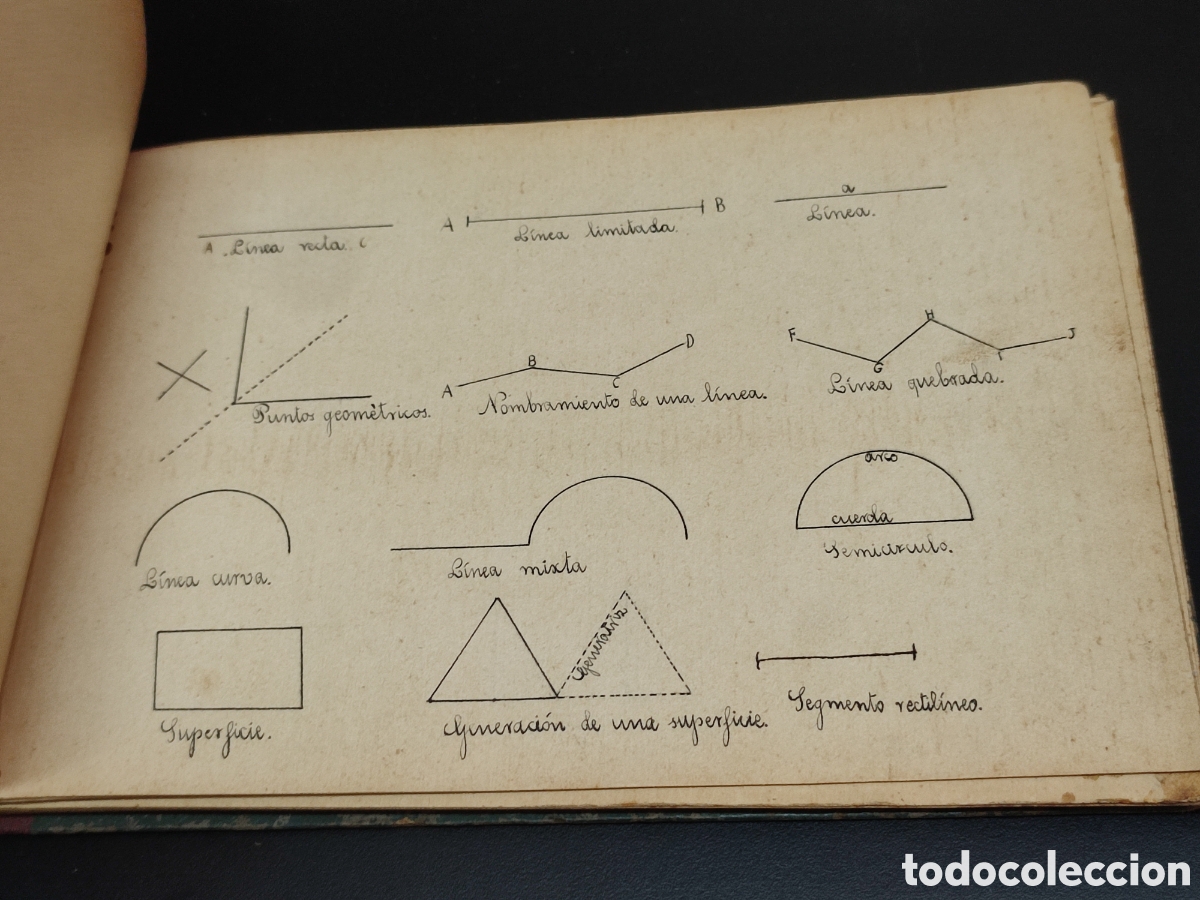 A Línea recta. C
A B
Línea limitada.
a
Línea.
Puntos geométricos.
A B C D
Nombramiento de una línea.
F G H I J
Línea quebrada.
Línea curva.
Línea mixta
arco
cuerda
Semicírculo.
Superficie.
Generatriz
Generación de una superficie.
Segmento rectilíneo.
todocoleccion